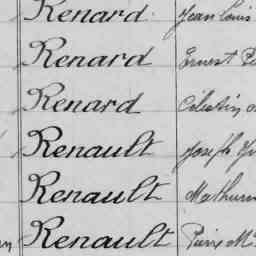 Renard Jean Louis
Renard Ernest
Renard Célestin
Renault Joseph
Renault Mathurin
Renault Pierre M